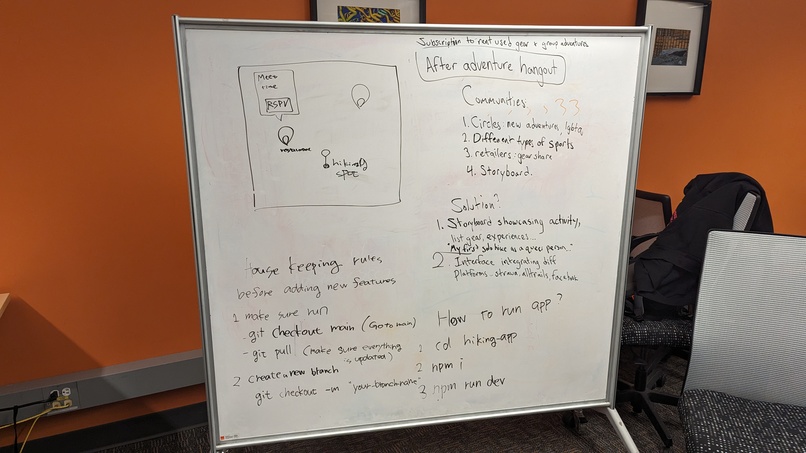 Subscription to rent used gear & group adventures
After adventure hangout
Meet
time
RSVP
restaurant
hiking
spot
Communities
33
1. Circles: new adventurers, lgbtq,
2. Different types of sports
3. retailers: gearshare
4. Storyboard.
Solution?
1. Storyboard showcasing activity,
list gear, experiences...
"My first solo hike as a queer person."
2. Interface integrating diff
Platforms - strava, alltrails, facebook
House keeping rules
before adding new features
1 make sure run
- git checkout main (Go to main)
- git pull (make sure everything
is updated)
2 create a new branch
git checkout "your-branch-name"
How to run app?
1 cd hiking-app
2 npm i
3 npm run dev